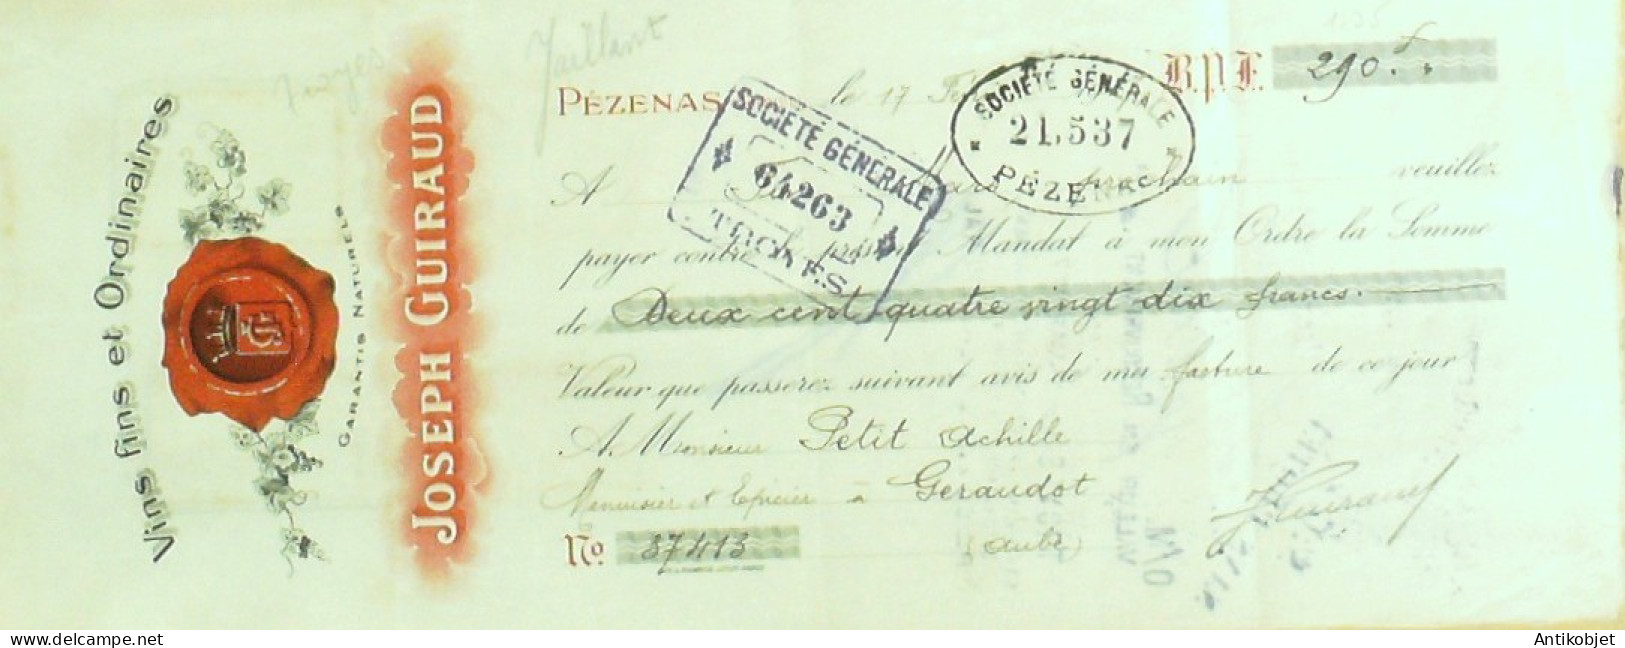 Vins fins et Ordinaires
GARANTIS NATURELS
JOSEPH GUIRAUD
Troyes
Jaillant
PÉZENAS, le 17
B.P.F. 290 f.
SOCIÉTÉ GÉNÉRALE
21.537
PÉZENAS
SOCIÉTÉ GÉNÉRALE
64263
TROYES
A prochain veuillez
payer contre le présent Mandat à mon Ordre la Somme
de Deux cent quatre vingt dix francs.
Valeur que passerez suivant avis de ma facture de ce jour
A Monsieur Petit Achille
Menuisier et Epicier à Geraudot
(Aube)
J Guiraud
No 37413
Antikobjet